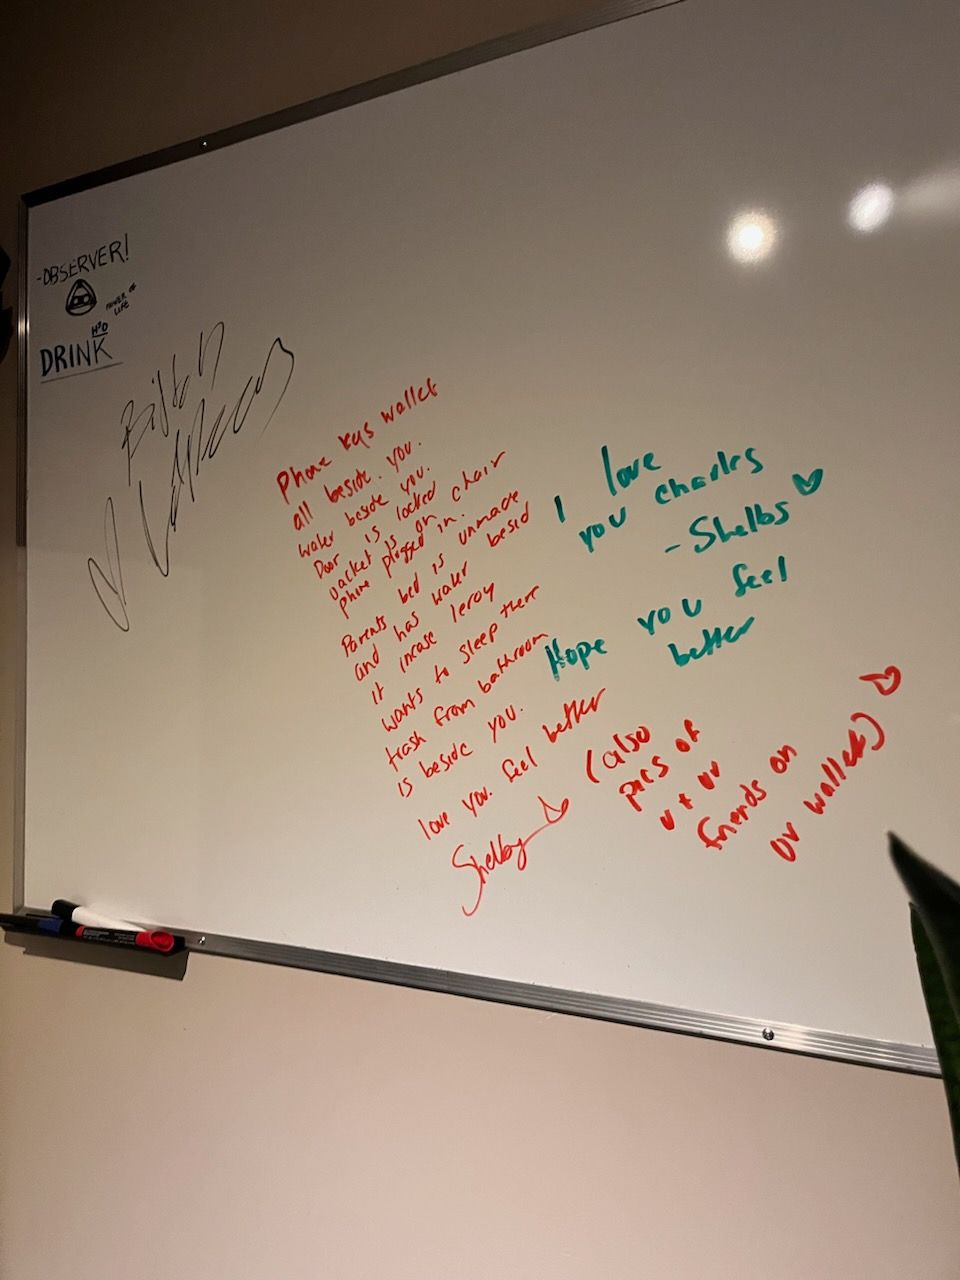 -OBSERVER!
POWER OF
LIFE
H²O
DRINK
Phone keys wallet
all beside you.
water beside you.
Door is locked
Jacket is on chair
phone plugged in.
Parents bed is unmade
and has water besid
it incase leroy
wants to sleep there
trash from bathroom
is beside you.
love you. feel better
Shelby
I love
you charles
- Shelbs
Hope you feel
better
(also
pics of
u + ur
friends on
ur wallet)